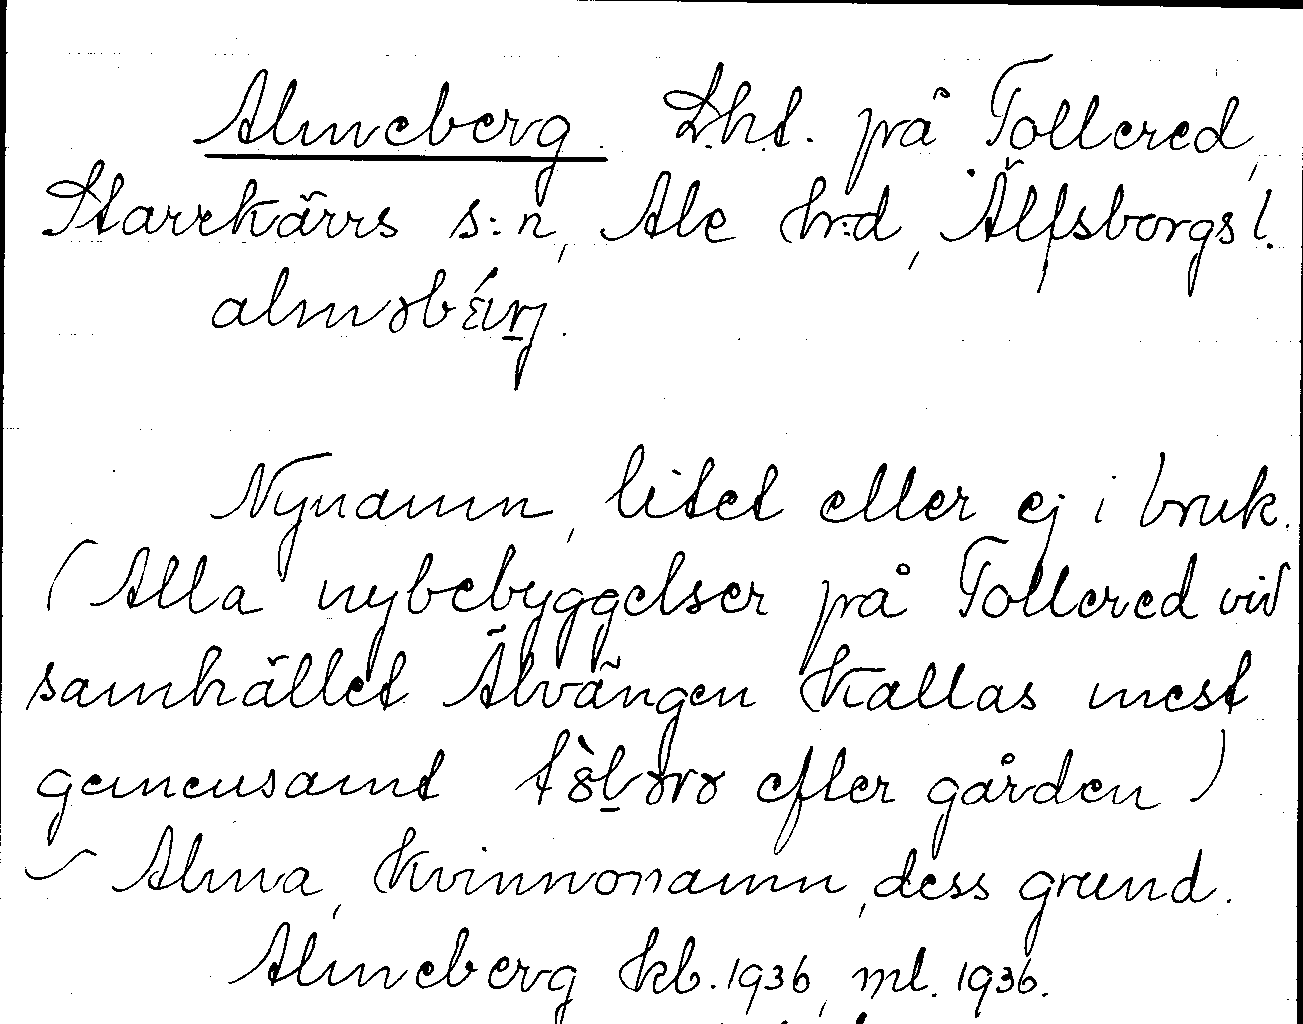 Almeberg. Lht. på Tollered,
Starrkärrs s:n, Ale h:d, Älfsborgs l.
Nynamn, litet eller ej i bruk.
(Alla nybebyggelser på Tollered vid
samhället Älvängen kallas mest
gemensamt efter gården)
Alma, kvinnonamn, dess grund.
Almeberg kb. 1936, ml. 1936.